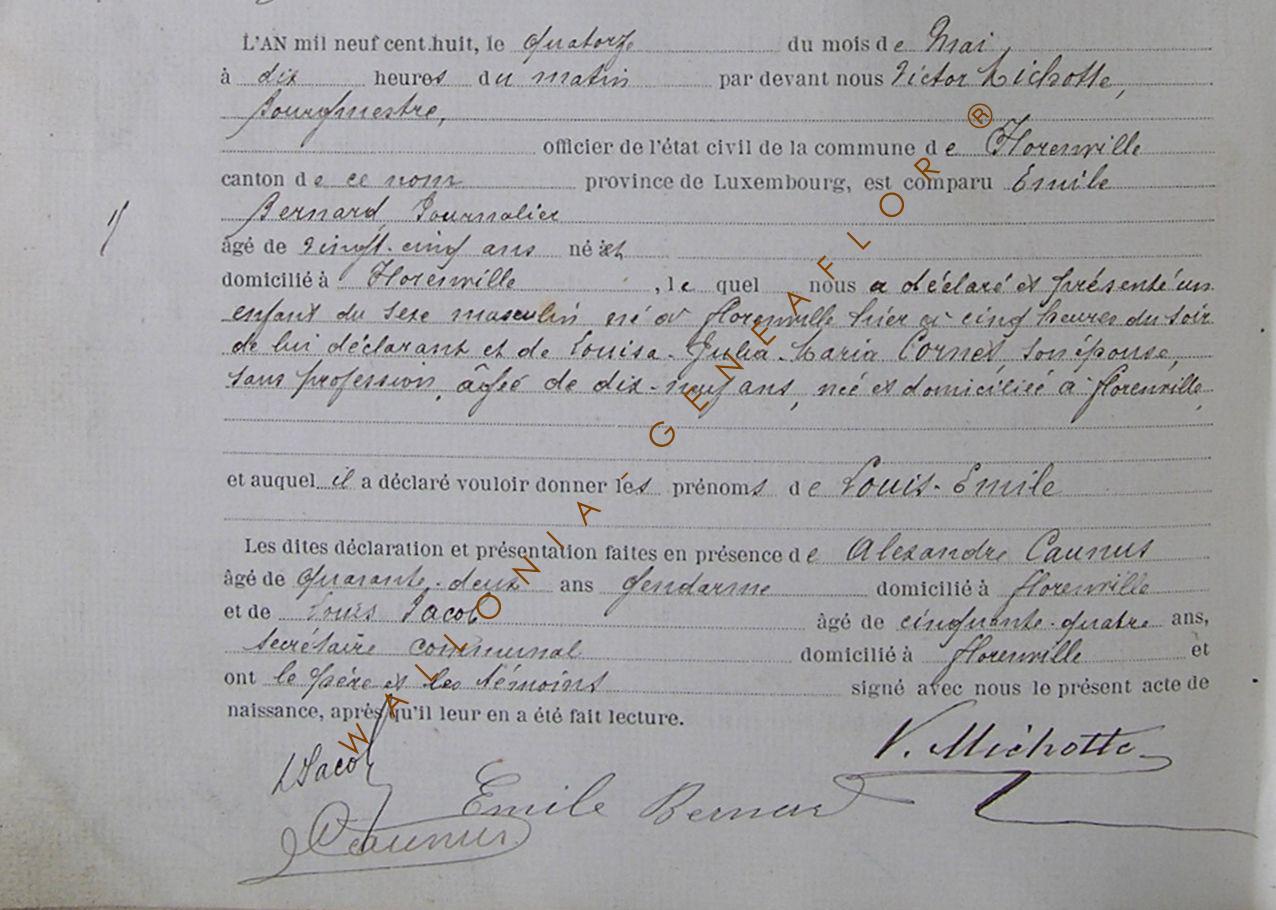 L'AN mil neuf cent huit, le quatorze du mois de Mai
à dix heures du matin par devant nous Victor Michotte,
Bourgmestre,
officier de l'état civil de la commune de Florenville
canton de ce nom province de Luxembourg, est comparu Emile
Bernard, Journalier
âgé de vingt-cinq ans né et
domicilié à Florenville, lequel nous a déclaré et présenté un
enfant du sexe masculin né à florenville hier à cinq heures du soir
de lui déclarant et de Louise-Julia-Maria Cornet, son épouse,
sans profession, âgée de dix-neuf ans, née et domiciliée à florenville,
et auquel il a déclaré vouloir donner les prénoms de Louis-Emile
Les dites déclaration et présentation faites en présence de Alexandre Caunus
âgé de quarante-deux ans gendarme domicilié à florenville
et de Louis Jacob âgé de cinquante-quatre ans,
secrétaire communal domicilié à florenville et
ont le père et les témoins signé avec nous le présent acte de
naissance, après qu'il leur en a été fait lecture.
V. Michotte
L Jacob
Emile Bernard
Caunus
WALLONIA-GENEAFLOR®